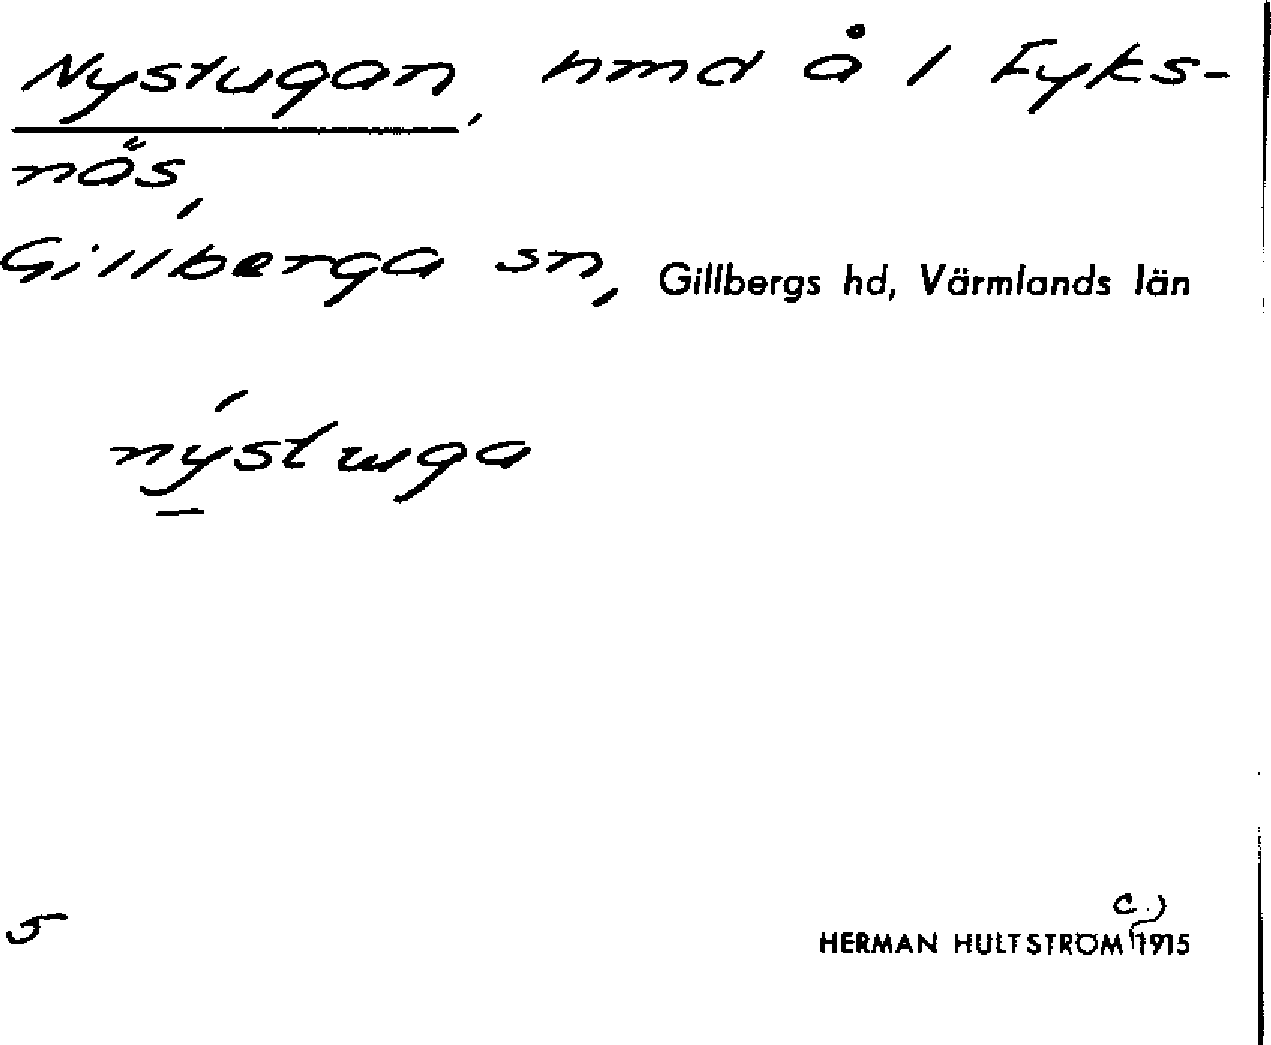 Nystugan, hmd å 1 Fyks-
näs,
Gillberga sn, Gillbergs hd, Värmlands län
nýstuga
5
HERMAN HULTSTRÖM c.) 1915